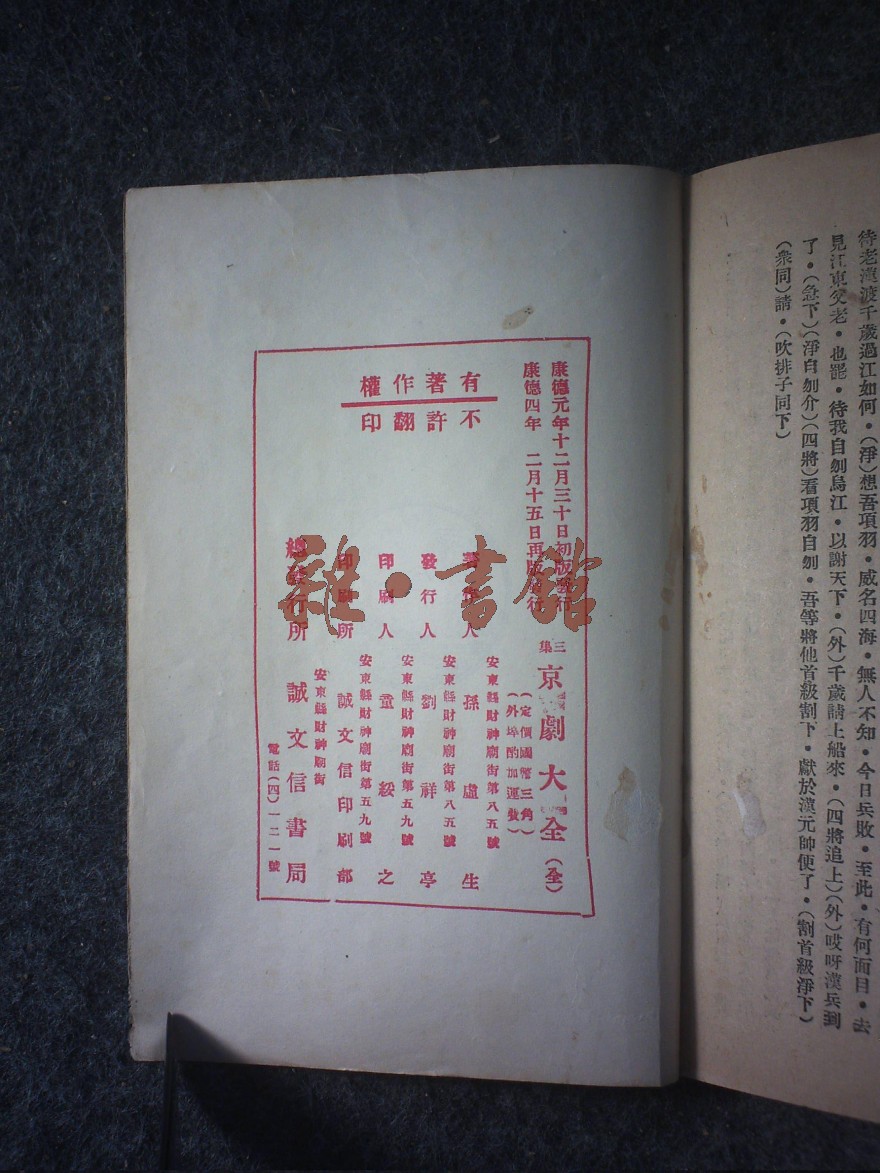 待老漢渡千歲過江如何·(淨)想吾項羽·威名四海·無人不知·今日兵敗·至此·有何面目·去
見江東父老·也罷·待我自刎烏江·以謝天下·(外)千歲請上船來·(四將追上)(外)哎呀漢兵到
了·(急下)(淨自刎介)(四將)看項羽自刎·吾等將他首級割下·獻於漢元帥便了·(割首級淨下)
(衆同)請·(吹排子同下)
康德元年十二月三十日初版發行
康德四年 二月十五日再版發行
有著作權
不許翻印
三集 京劇大全(全)
(定價國幣三角)
(外埠酌加運費)
安東縣財神廟街第八五號
著作人 孫虛生
安東縣財神廟街第八五號
發行人 劉祥亭
安東縣財神廟街第五九號
印刷人 童綏之
安東縣財神廟街第五九號
印刷所 誠文信印刷部
安東縣財神廟街
總發行所 誠文信書局
電話(四)一二一號
雜·書館